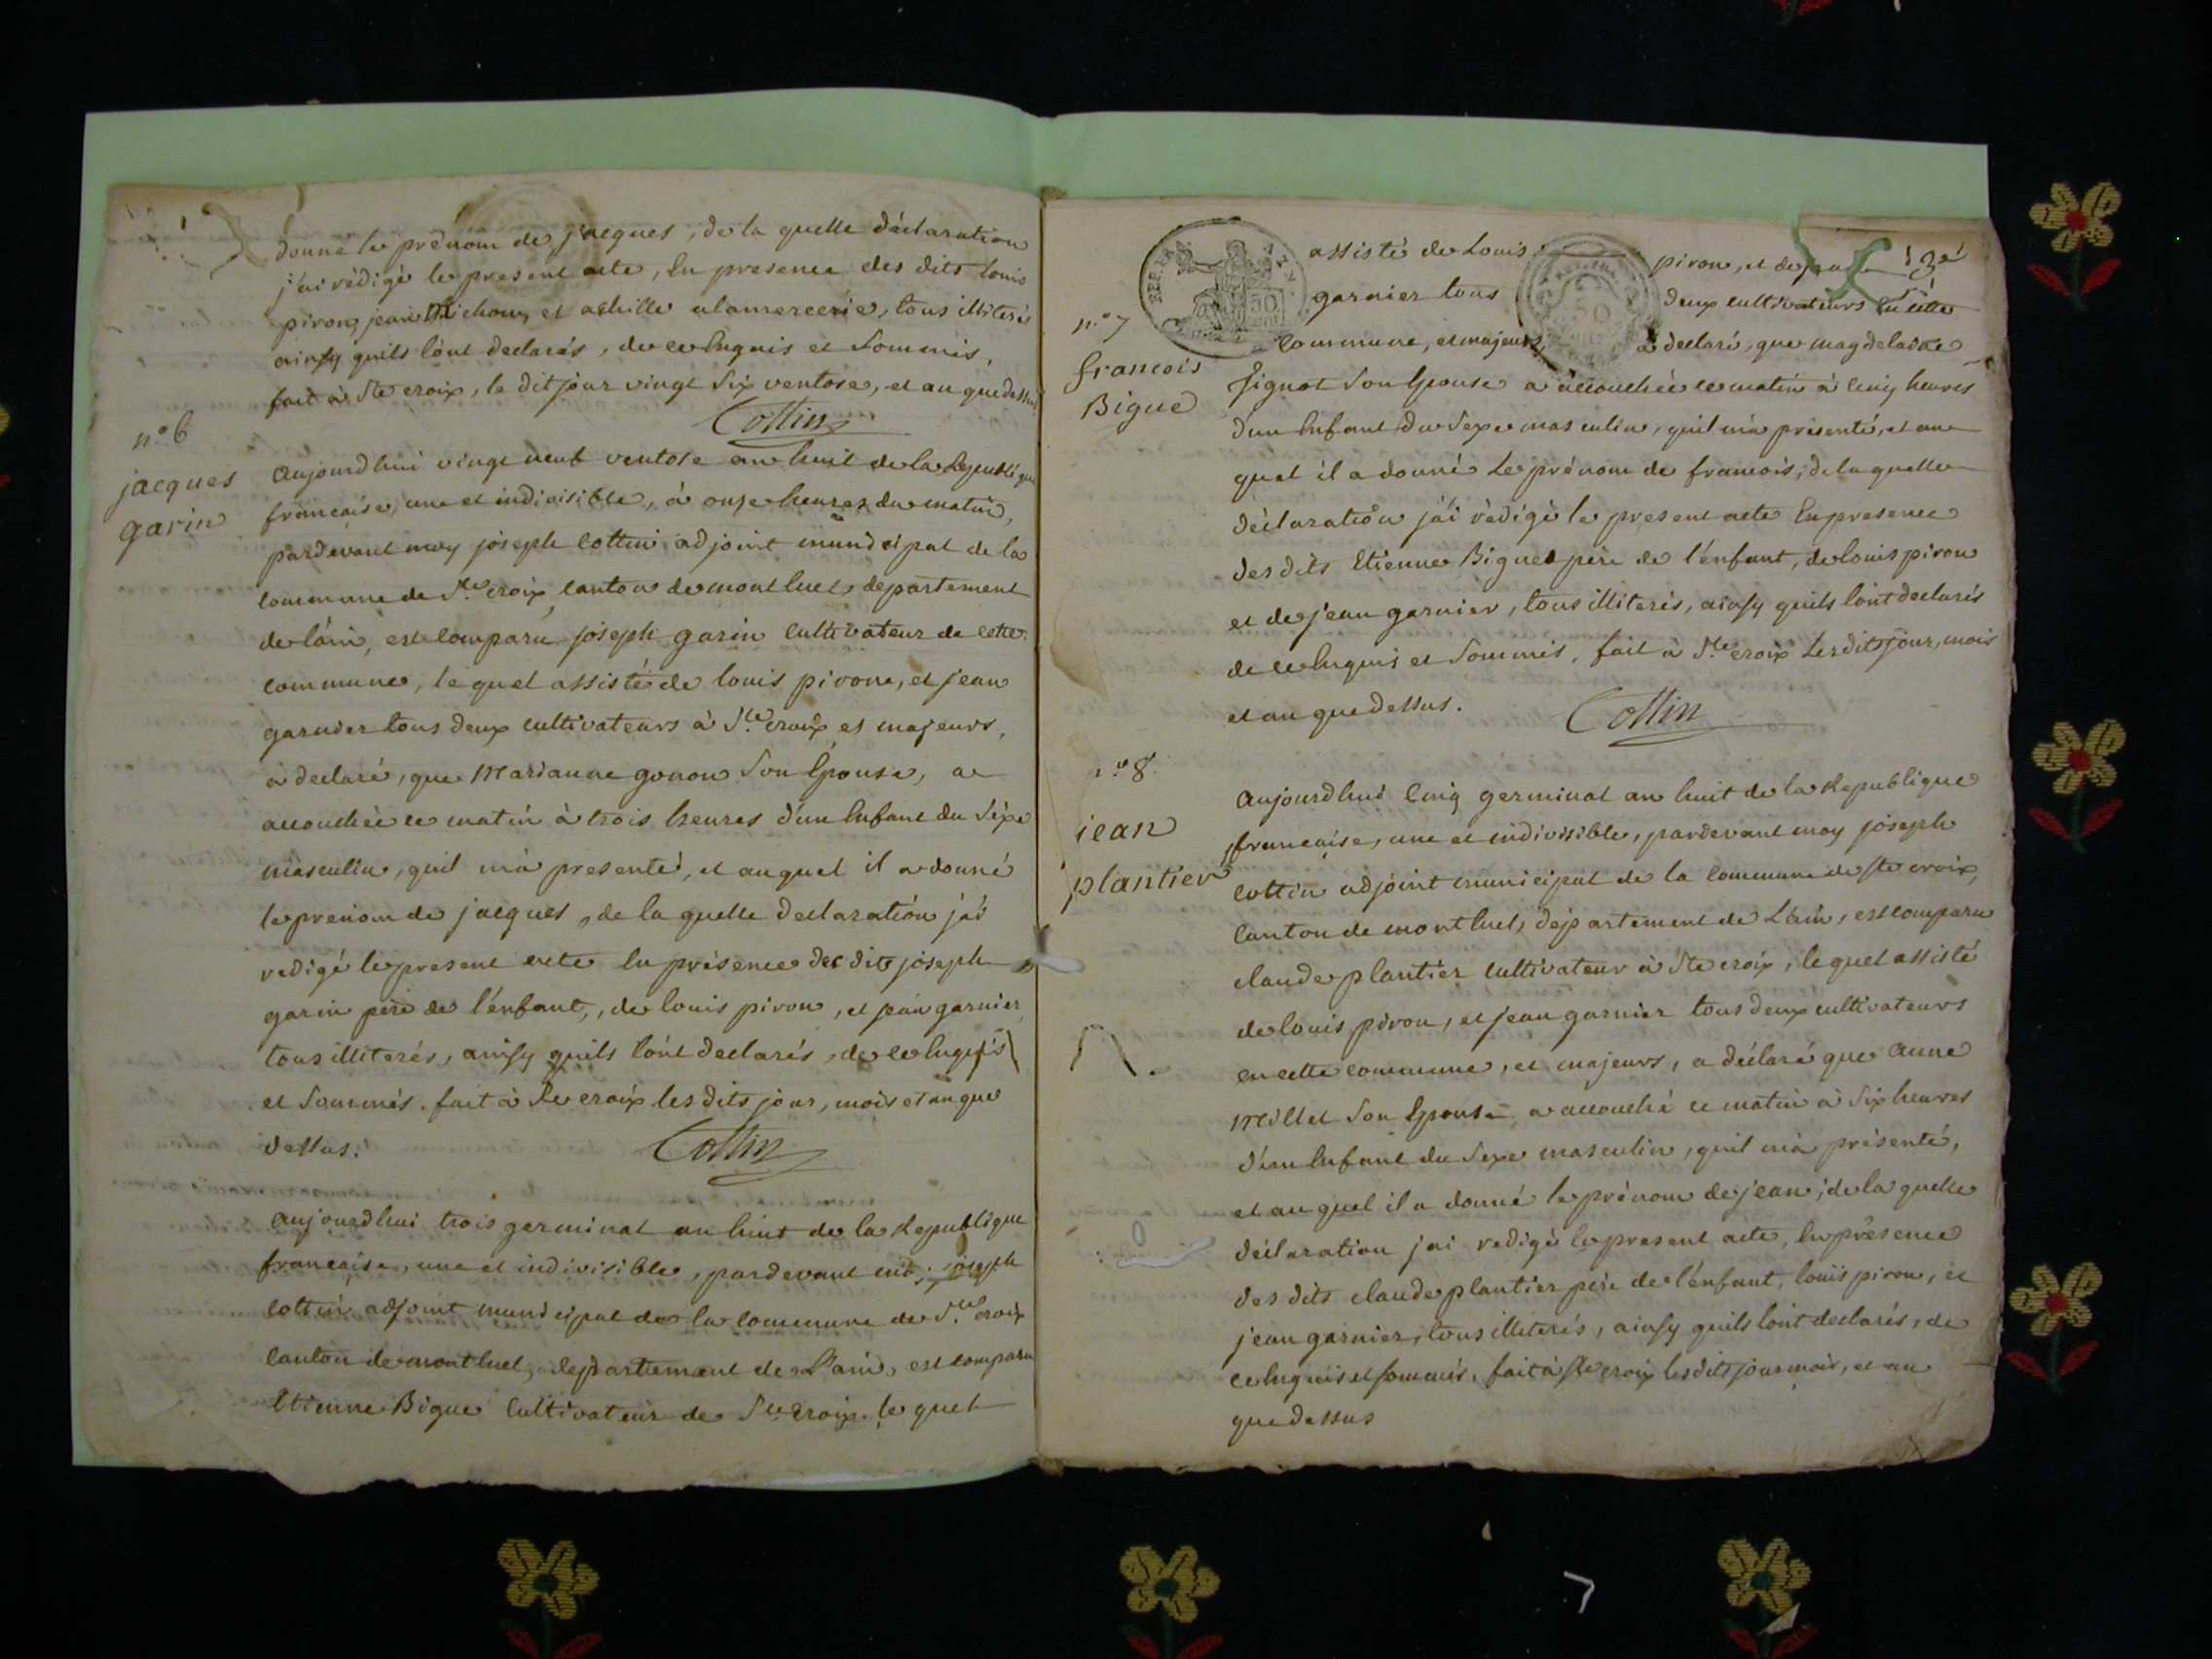 donné le prénom de jacques, de la quelle déclaration
j'ai rédigé le present acte, en presence des dits louis
piron, jean Michon, et achille alamercerie, tous illiterés
ainsy quils lont declarés, de ce enquis et sommés,
fait à Ste croix, le dit jour vingt six ventose, et an que dessus
Cottin
n.º 6
jacques
garin
Aujourdhui vingt neuf ventose an huit de la Republique
francaise, une et indivisible, à onze heures du matin,
pardevant moy joseph cottin adjoint municipal de la
commune de Ste croix, canton de montluel, departement
de láin, est comparu joseph garin cultivateur de cette
commune, le quel assisté de louis pirone, et jean
garnier tous deux cultivateurs à Ste croix, et majeurs,
à declaré, que Marianne gonon son Epouse, a
accouchée ce matin à trois heures d'un Enfant du Sexe
masculin, quil ma presenté, et auquel il a donné
le prenom de jacques, de la quelle declaration jai
redigé le present acte en présence des dits joseph
garin pere de l'enfant, de louis piron, et jean garnier
tous illiterés, ainsy quils lont declarés, de ce enquis
et sommés. fait à Ste croix les dits jour, mois et an que
dessus.
Cottin
Aujourdhui trois germinal an huit de la Republique
francaise, une et indivisible, pardevant moi joseph
cottin adjoint municipal de la commune de Ste croix
canton de montluel, departement de L'ain, est comparu
Etienne Bigue cultivateur de Ste croix. le quel
REP. FRA
50
50
assisté de Louis piron, et de
garnier tous deux cultivateurs en cette
commune, et majeurs, à declaré, que magdelaine
n.º 7
francois
Bigue
son Epouse a accouchée ce matin à cinq heures
d'un Enfant du Sexe masculin, quil má présenté, et au
quel il a donné Le prénom de francois; de la quelle
déclaration j'ai rédigé le present acte En presence
des dits Etienne Bigue père de l'énfant, de louis piron
et de jean garnier, tous illiterés, ainsy quils lont declarés
de ce enquis et Sommés. fait à Ste croix Les dits jour, mois
et an que dessus.
Cottin
n.º 8.
jean
plantier
Aujourdhui cinq germinal an huit de la Republique
francaise, une et indivisible, pardevant moy joseph
cottin adjoint municipal de la commune de Ste croix,
canton de montluel, departement de L'ain, est comparu
claude plantier cultivateur à Ste croix, le quel assisté
de louis piron, et jean garnier tous deux cultivateurs
en cette commune, et majeurs, a déclaré que Anne
Millet son Epouse a accouché ce matin à six heures
d'un Enfant du Sexe masculin, quil má présenté,
et au quel il a donné le prénom de jean; de la quelle
déclaration j'ai redigé le present acte, en présence
des dits claude plantier père de l'énfant, louis piron, et
jean garnier, tous illiterés, ainsy quils lont declarés, de
ce enquis et sommés. fait à Ste croix les dits jour mois, et an
que dessus